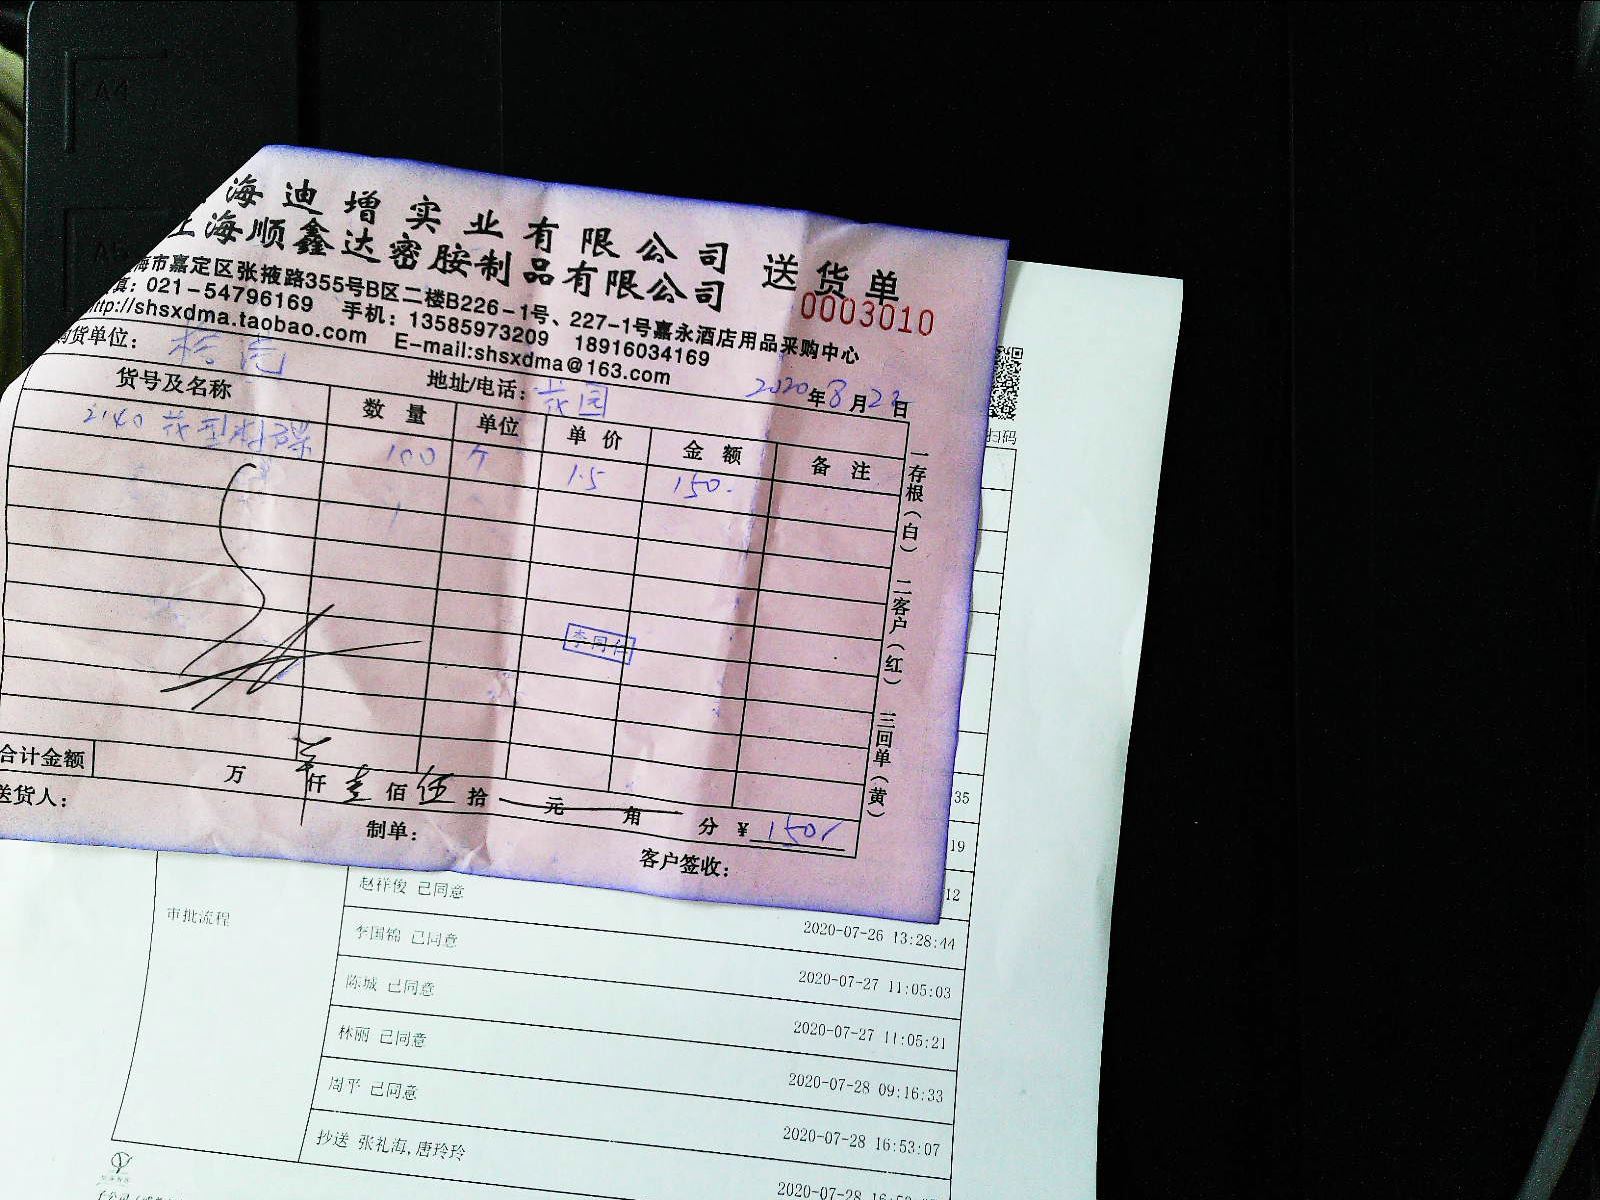 海迪增实业有限公司 送货单
上海顺鑫达密胺制品有限公司
0003010
海市嘉定区张掖路355号B区二楼B226-1号、227-1号嘉永酒店用品采购中心
真：021-54796169 手机：13585973209 18916034169
http://shsxdma.taobao.com E-mail:shsxdma@163.com
购货单位： 地址/电话：花园 2020年8月2 日
货号及名称 数量 单位 单价 金额 备注
2140 100 个 1.5 150.
一存根（白） 二客户（红） 三回单（黄）
合计金额 万 仟 壹 佰 伍 拾 元 角 分 ¥ 150
送货人： 制单： 客户签收：
A4
扫码
35
19
12
审批流程
赵祥俊 已同意 2020-07-26 13:28:44
李国锦 已同意 2020-07-27 11:05:03
陈城 已同意 2020-07-27 11:05:21
林丽 已同意 2020-07-28 09:16:33
周平 已同意 2020-07-28 16:53:07
抄送 张礼海,唐玲玲